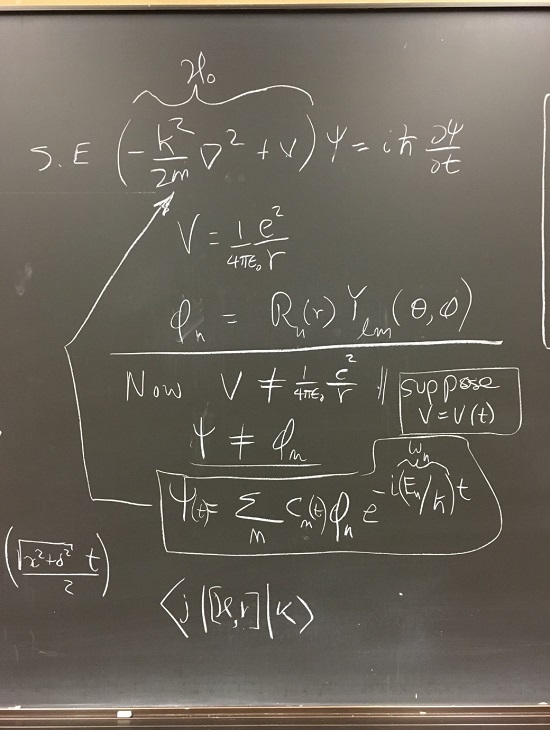 ℋ₀
S.E (-k²/2m ∇² + V) Ψ = iħ ∂Ψ/∂t
V = 1/4πε₀ e²/r
φₙ = Rₙ(r) Yₗₘ(θ,φ)
Now V ≠ 1/4πε₀ e²/r // suppose
V = V(t)
Ψ ≠ φₙ
ωₙ
Ψ(t) = Σₙ cₙ(t) φₙ e^{-i(Eₙ/ħ)t}
(√x²+δ² t / 2)
⟨j|[ℋ,r]|k⟩